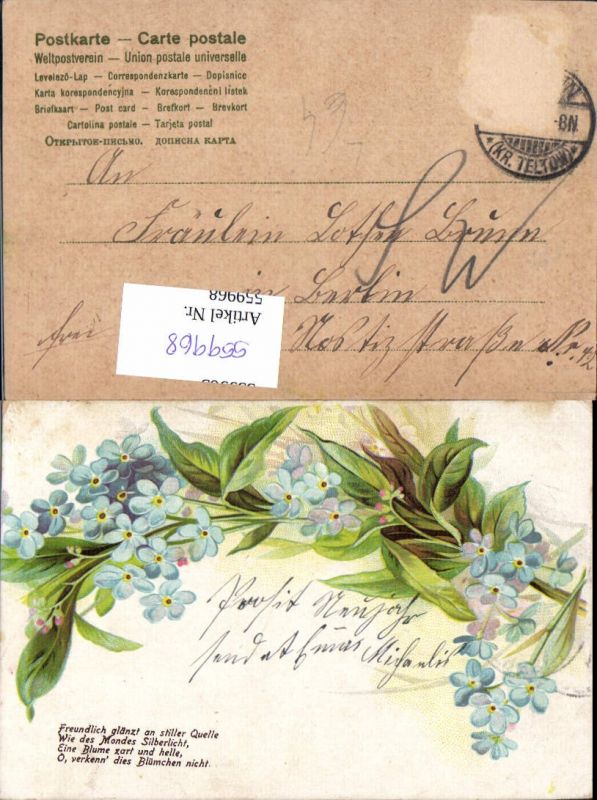 Postkarte — Carte postale
Weltpostverein — Union postale universelle
Levelező-Lap — Correspondenzkarte — Dopisnice
Karta korespondencyjna — Korespondenční lístek
Briefkaart — Post card — Brefkort — Brevkort
Cartolina postale — Tarjeta postal
Открытое-письмо. дописна карта
-8N
(KR. TELTOW)
An
Fräulein
in Berlin
frei Nostizstraße Nr. 42
559968
Artikel Nr.
559968
Prosit Neujahr
sendet Michaelis
Freundlich glänzt an stiller Quelle
Wie des Mondes Silberlicht,
Eine Blume zart und helle,
O, verkenn' dies Blümchen nicht.